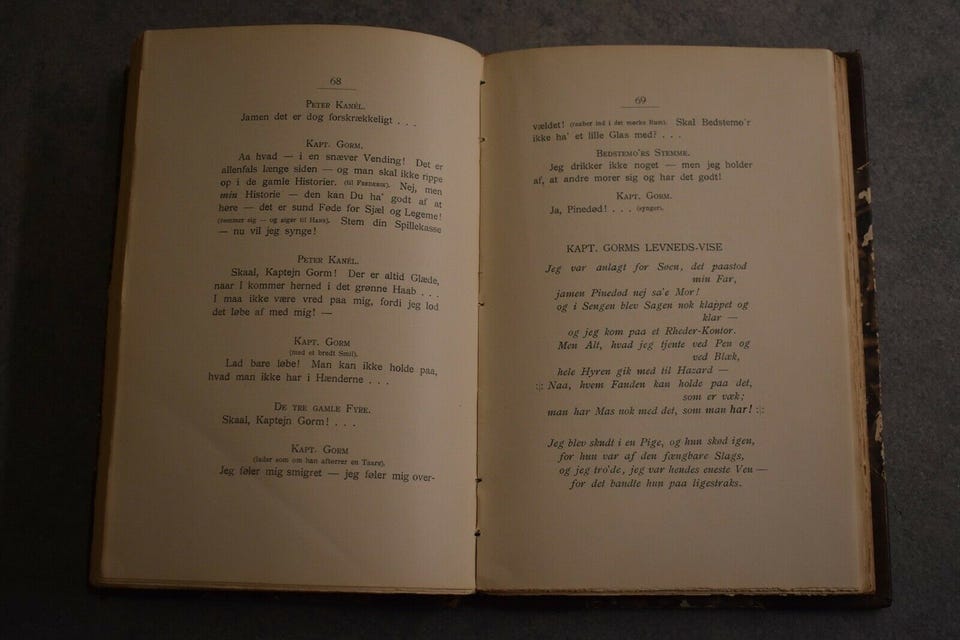 68
PETER KANÉL.
Jamen det er dog forskrækkeligt . . .
KAPT. GORM.
Aa hvad — i en snæver Vending! Det er
allenfals længe siden — og man skal ikke rippe
op i de gamle Historier. (til FREDERIK). Nej, men
min Historie — den kan Du ha' godt af at
høre — det er sund Føde for Sjæl og Legeme!
(rømmer sig — og siger til HANS). Stem din Spillekasse
— nu vil jeg synge!
PETER KANÉL.
Skaal, Kaptejn Gorm! Der er altid Glæde,
naar I kommer herned i det grønne Haab . . .
I maa ikke være vred paa mig, fordi jeg lod
det løbe af med mig! —
KAPT. GORM
(med et bredt Smil).
Lad bare løbe! Man kan ikke holde paa,
hvad man ikke har i Hænderne . . .
DE TRE GAMLE FYRE.
Skaal, Kaptejn Gorm! . . .
KAPT. GORM
(lader som om han aftørrer en Taare).
Jeg føler mig smigret — jeg føler mig over-
69
vældet! (raaber ind i det mørke Rum). Skal Bedstemo'r
ikke ha' et lille Glas med? . . .
BEDSTEMO'RS STEMME.
Jeg drikker ikke noget — men jeg holder
af, at andre morer sig og har det godt!
KAPT. GORM.
Ja, Pinedød! . . . (synger).
KAPT. GORMS LEVNEDS-VISE
Jeg var anlagt for Søen, det paastod
min Far,
jamen Pinedød nej sa'e Mor!
og i Sengen blev Sagen nok klappet og
klar —
og jeg kom paa et Rheder-Kontor.
Men Alt, hvad jeg tjente ved Pen og
ved Blæk,
hele Hyren gik med til Hazard —
:|: Naa, hvem Fanden kan holde paa det,
som er væk;
man har Mas nok med det, som man har! :|:
Jeg blev skudt i en Pige, og hun skød igen,
for hun var af den fængbare Slags,
og jeg tro'de, jeg var hendes eneste Ven —
for det bandte hun paa ligestraks.